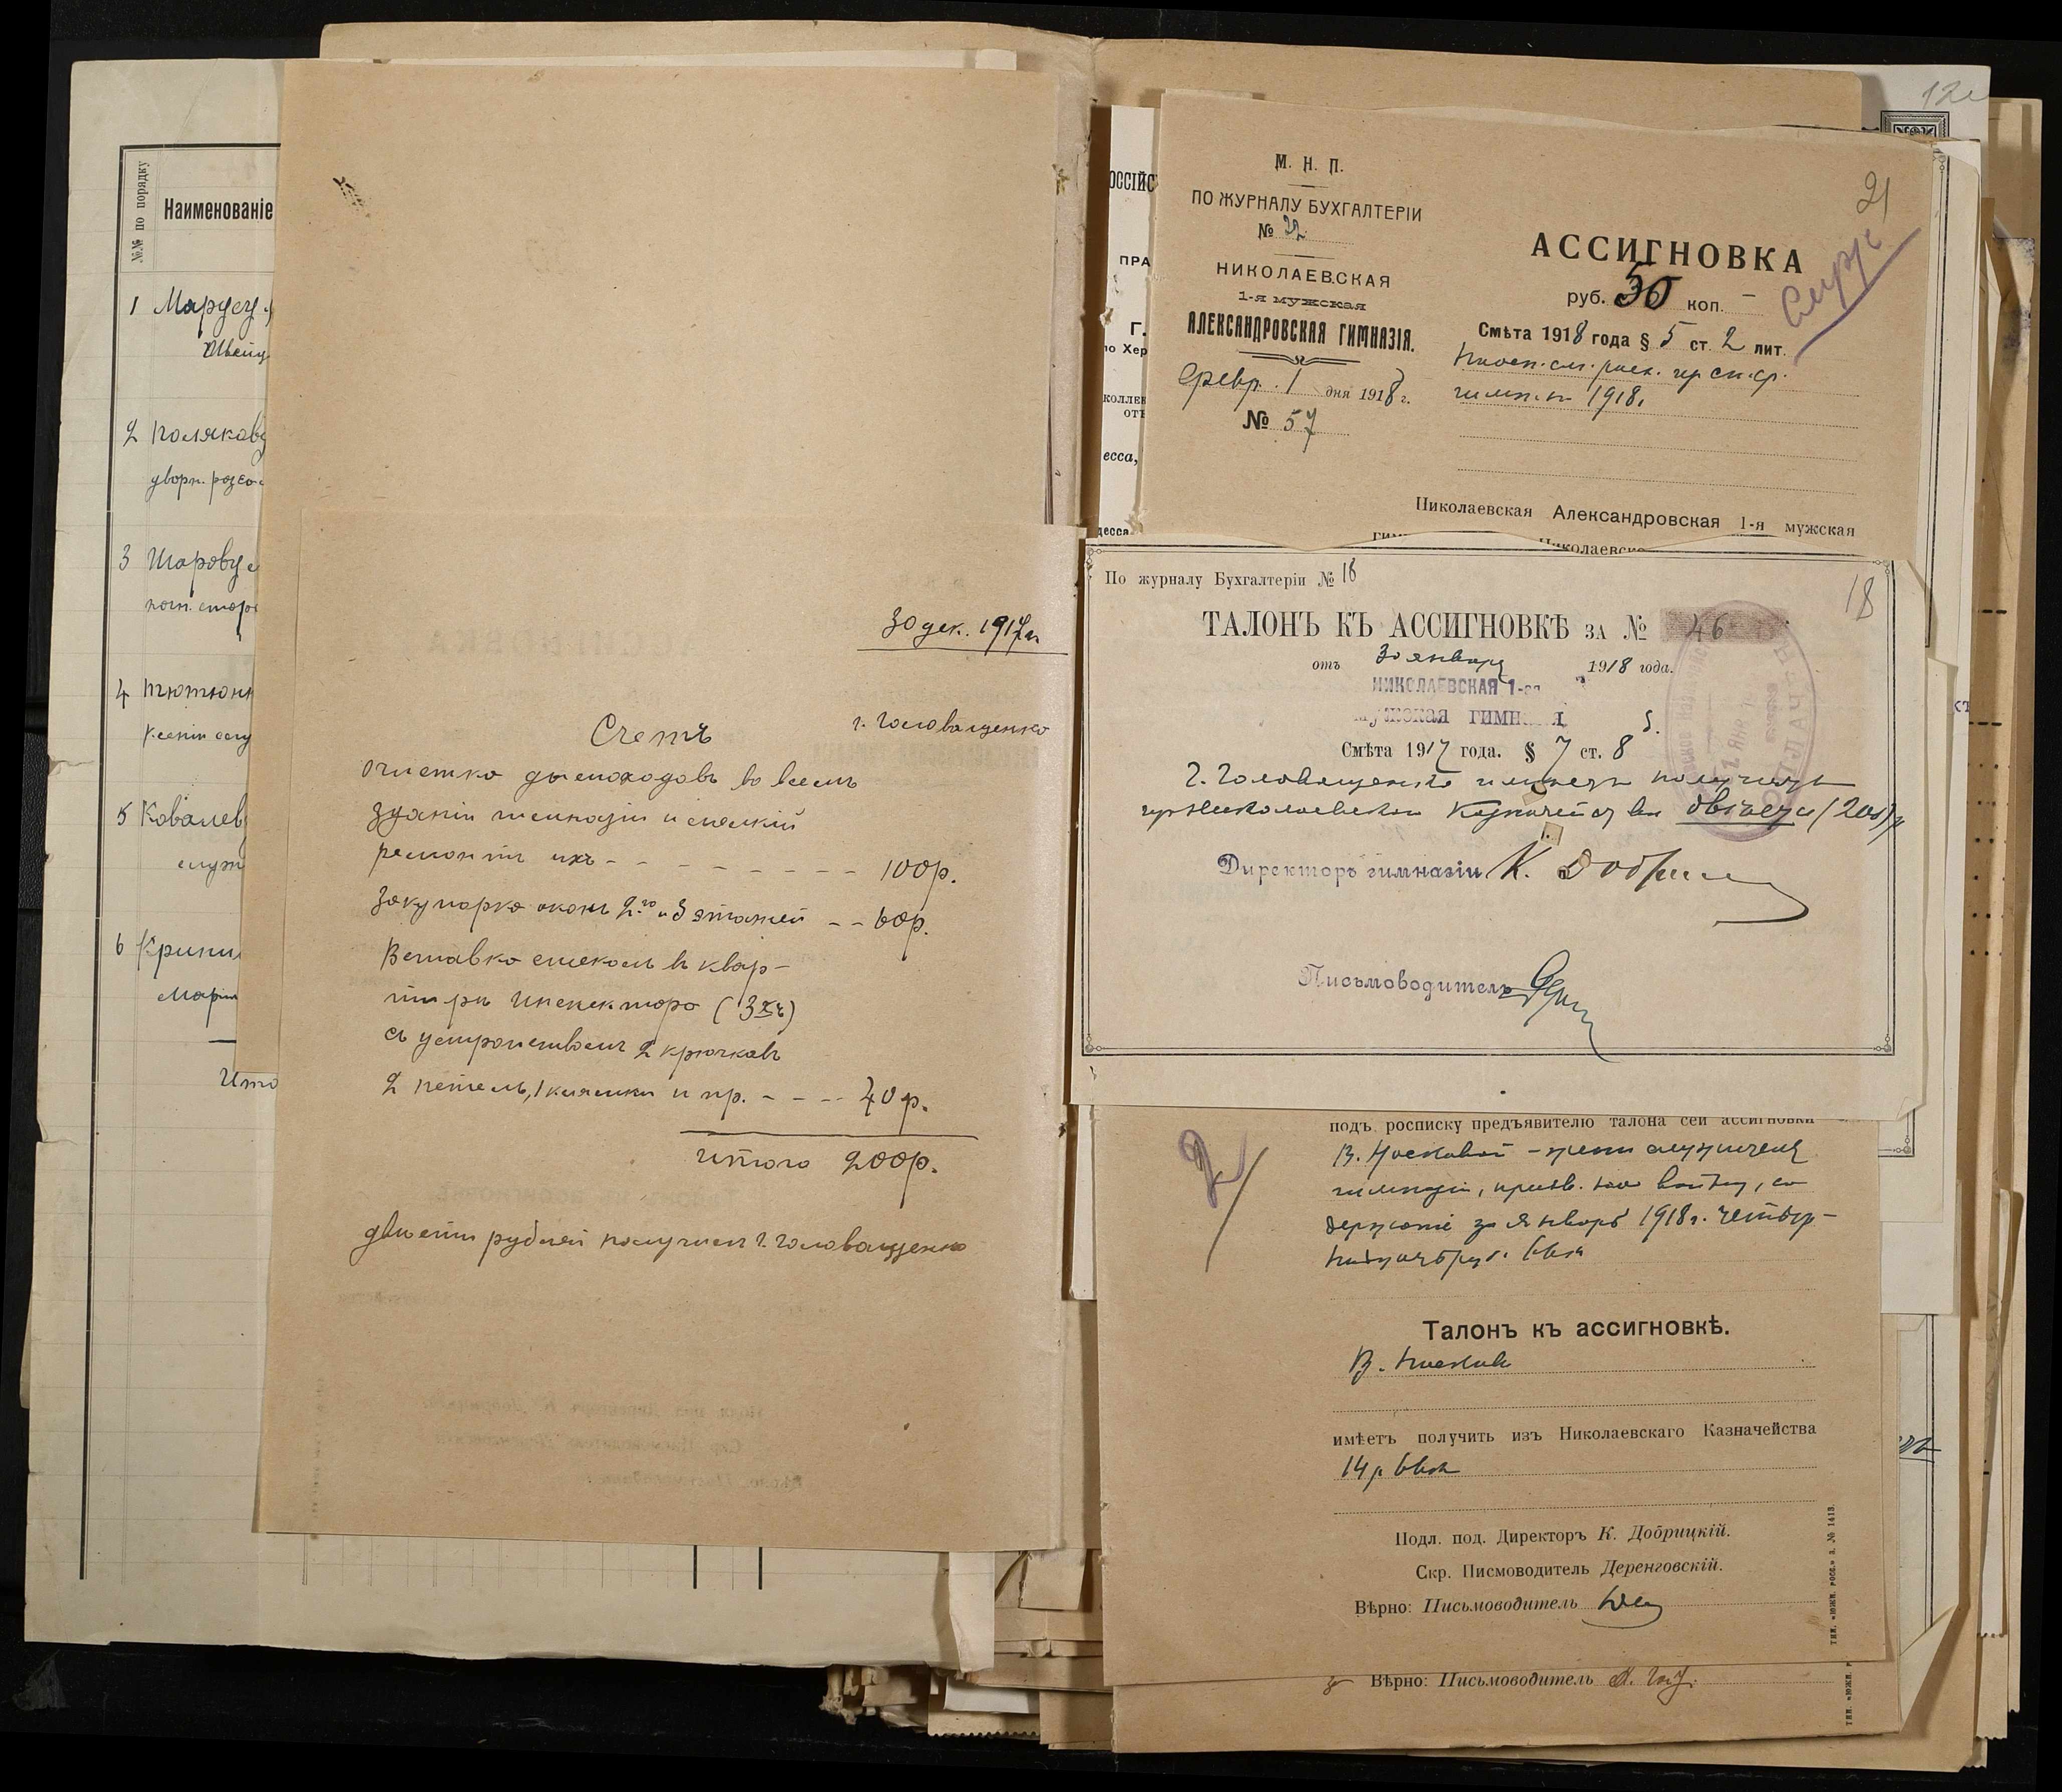 №№ по порядку
Наименованіе
1 Марусу
Швейц
2 Полякову
дворн.
3 Шарову
4 Тютюнн
5 Ковалев
служ
6 Крипи
Мари
Ито
30 дек. 1917 г.
Счетъ
г. Головащенко
очистка дымоходовъ во всемъ
зданіи гимназіи и мелкій
ремонтъ ихъ - - - - - - - - 100р.
Закупорка оконъ 2-го и 3 этажей - - 60р.
Вставка стеколъ въ квар-
тиръ Инспектора (3хъ)
съ устройствомъ 2 крючковъ
2 петель, 1 клямки и пр. - - - - 40р.
Итого 200р.
двѣсти рублей получилъ Г. Головащенко
ОССІЙС
ПРА
Г.
по Хер
КОЛЛЕК
ОТЪ
есса,
десса
М. Н. П.
ПО ЖУРНАЛУ БУХГАЛТЕРІИ
№ 32
НИКОЛАЕВСКАЯ
1-я мужская
АЛЕКСАНДРОВСКАЯ ГИМНАЗІЯ.
Февр. 1 дня 1918 г.
№ 57
21
АССИГНОВКА
руб. 50 коп. —
Смѣта 1918 года § 5 ст. 2 лит.
1918.
Николаевская Александровская 1-я мужская
По журналу Бухгалтеріи № 18
18
ТАЛОНЪ КЪ АССИГНОВКѢ ЗА № 46
отъ 30 января 1918 года.
НИКОЛАЕВСКАЯ 1-ая
мужская гимназія
Смѣта 1917 года. § 7 ст. 8
Г. Головащенко имѣетъ получить
изъ Николаевскаго Казначейства двѣсти (200) р
Директоръ гимназіи К. Добриц
Письмоводитель
2
подъ росписку предъявителю талона сей ассигновки
В. Носковой - жены служителя
гимназіи, призв. на войну, со
держаніе за Январь 1918 г. Четыр-
надцать руб. 66к
Талонъ къ ассигновкѣ.
В. Носкова
имѣетъ получить изъ Николаевскаго Казначейства
14р 66к
Подл. под. Директоръ К. Добрицкій.
Скр. Писмоводитель Деренговскій.
Вѣрно: Письмоводитель
ТИП. «ЮЖН. РОСС.» З. № 1413.
Вѣрно: Письмоводитель